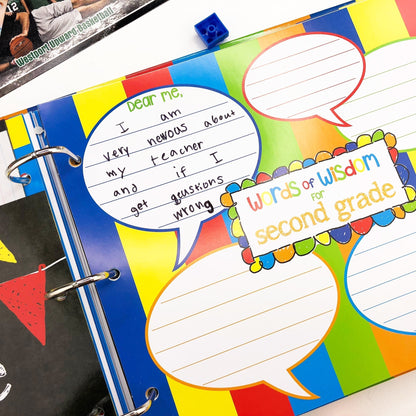 Westport Upward Basketball
Dear Me,
I am
very nevous about
my teacher
and if I
get qeustions
wrong
Words of Wisdom
for
second grade